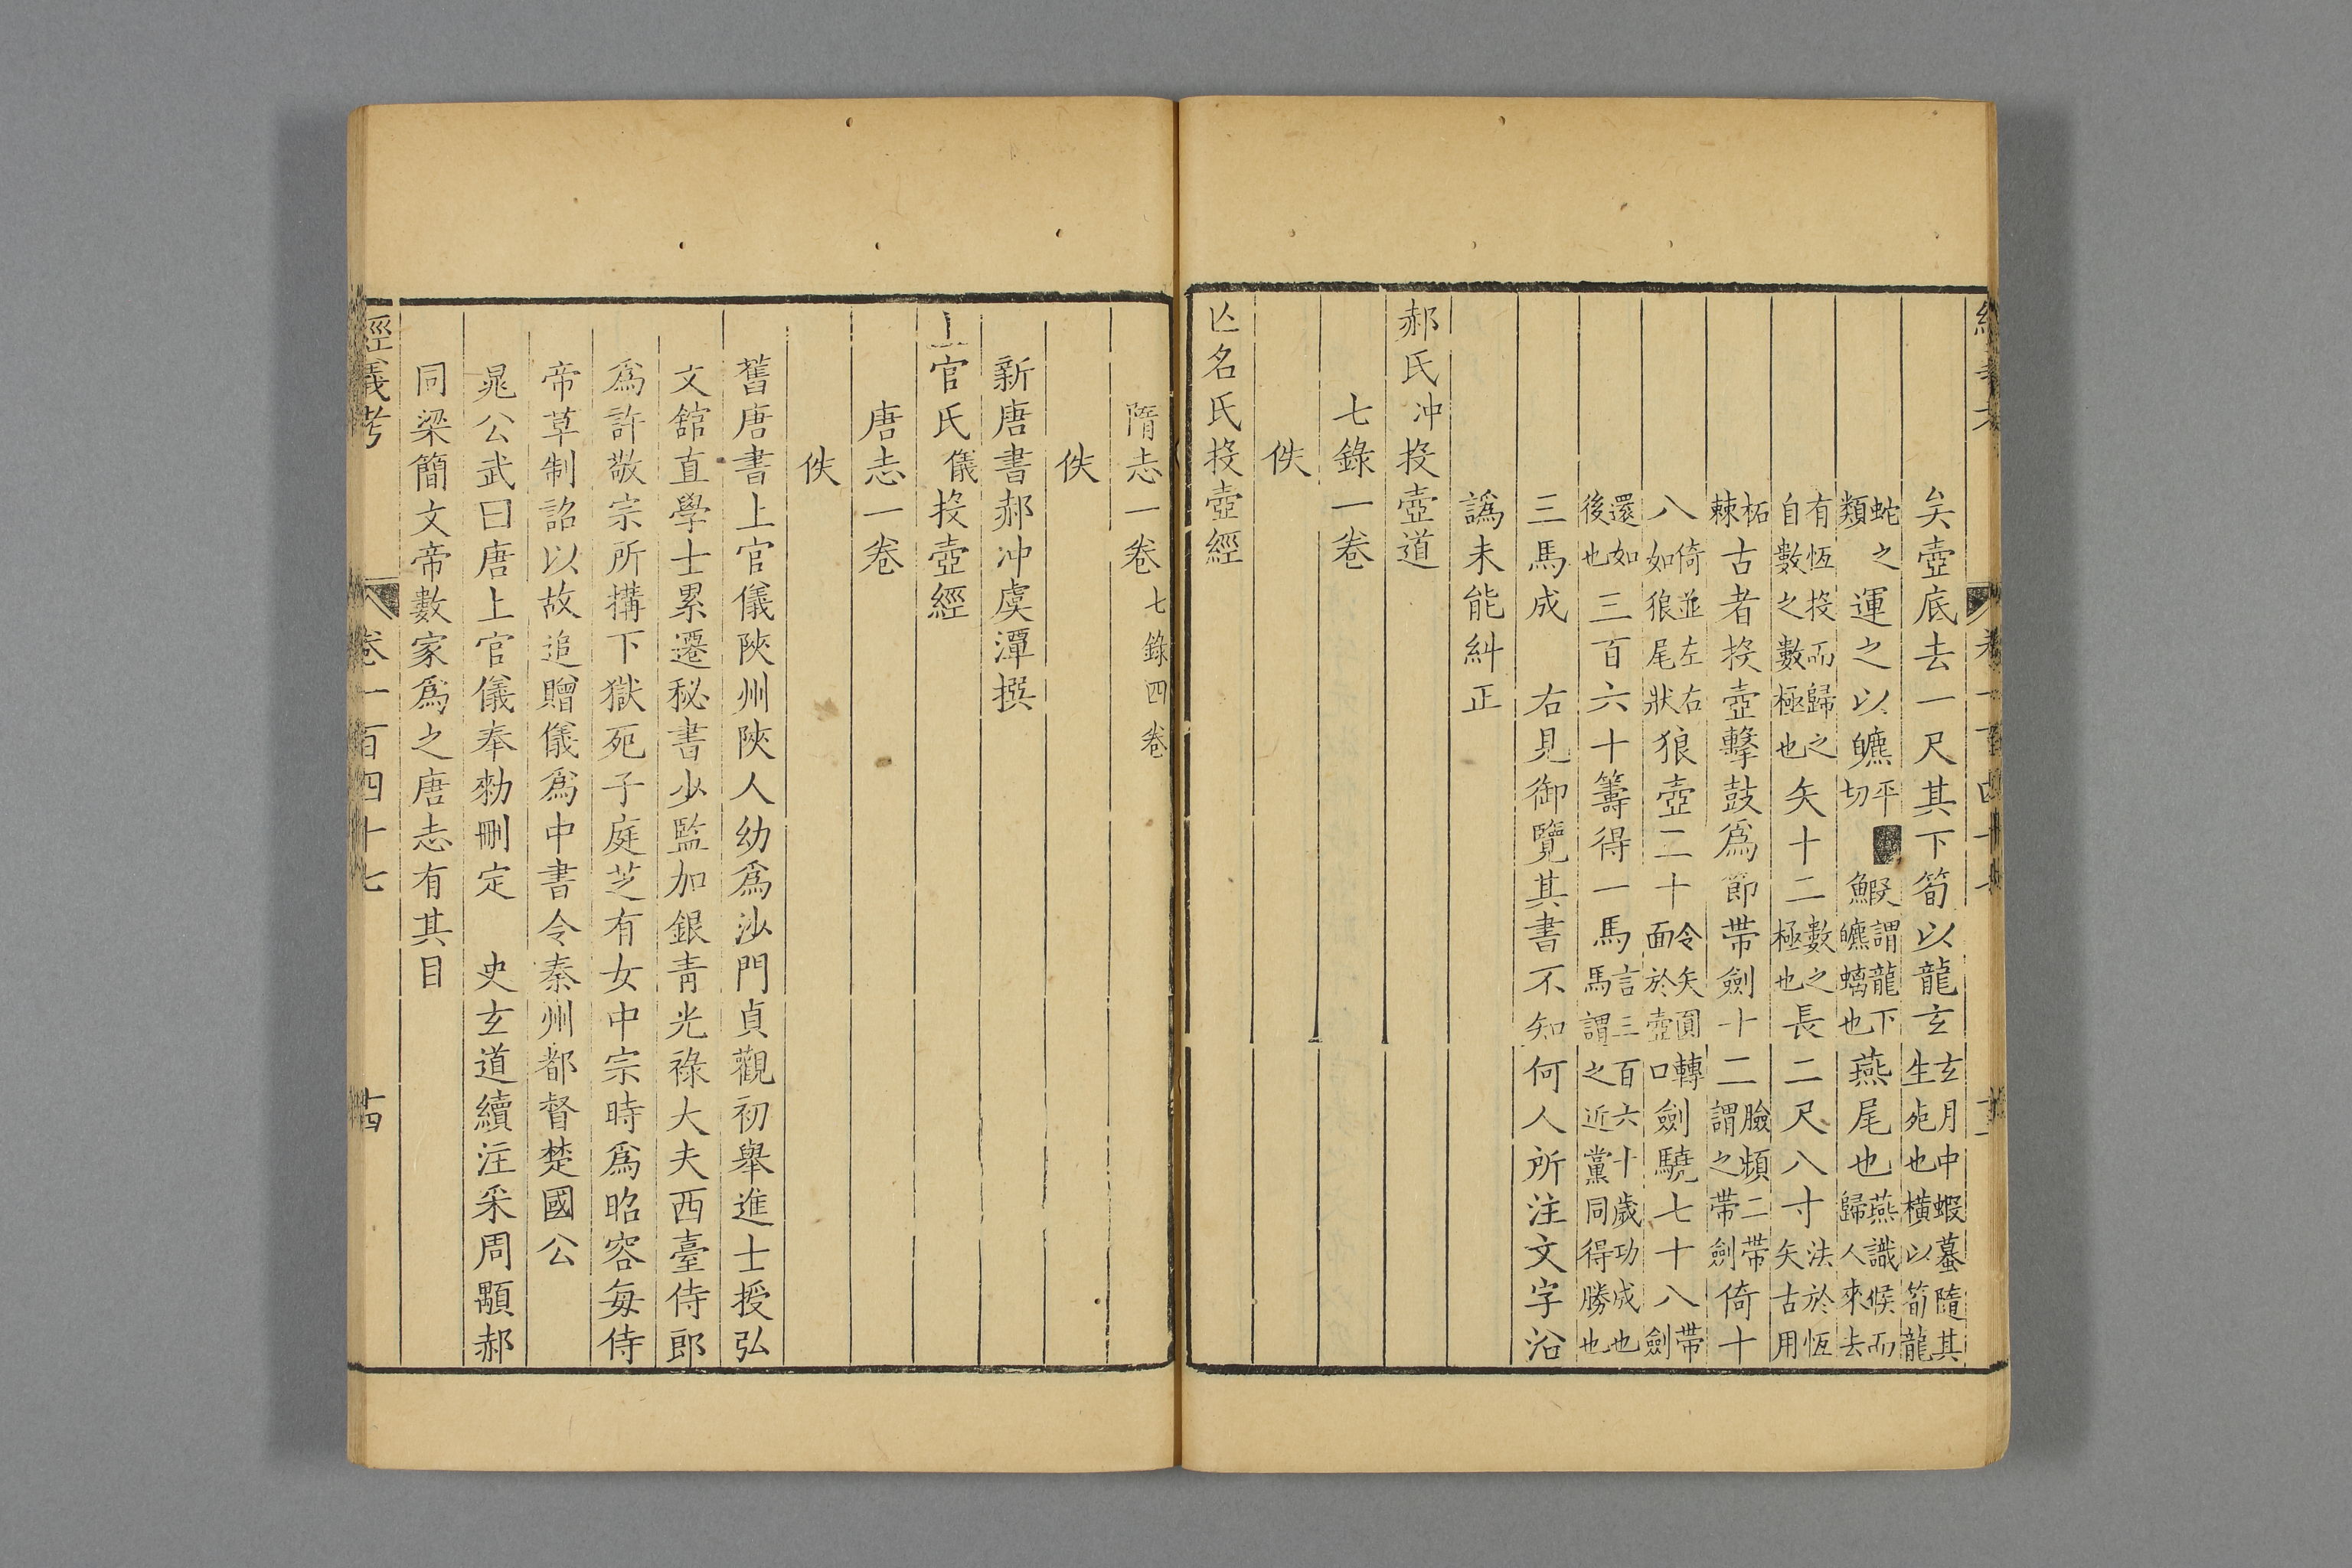 經義考 卷一百四十七
矢壺底去一尺其下筍以龍玄玄月中蝦蟇隨其生死也橫以筍龍
蛇之類運之以皫平■切鰕謂龍下皫螭也燕尾也燕識候而歸人來去
有恆投而歸之自數之數極也矢十二數之極也長二尺八寸法於恆矢古用
柘棘古者投壺擊鼓爲節帶劍十二臉頰二帶謂之帶劍倚十
八倚並左右如狼尾狀狼壺二十令矢圓轉面於壺口劍驍七十八帶劍
還如後也三百六十籌得一馬言三百六十歲功成也馬謂之近黨同得勝也
三馬成 右見御覽其書不知何人所注文字沿
譌未能糾正
郝氏冲投壺道
七錄一卷
佚
亾名氏投壺經
隋志一卷七錄四卷
佚
新唐書郝冲虞潭撰
上官氏儀投壺經
唐志一卷
佚
舊唐書上官儀陝州陝人幼爲沙門貞觀初舉進士授弘
文舘直學士累遷秘書少監加銀靑光祿大夫西臺侍郎
爲許敬宗所搆下獄死子庭芝有女中宗時爲昭容每侍
帝草制詔以故追贈儀爲中書令秦州都督楚國公
晁公武曰唐上官儀奉勑刪定 史玄道續注采周顒郝
同梁簡文帝數家爲之唐志有其目
經義考 卷一百四十七 十四